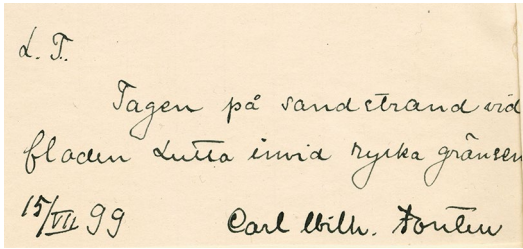 L. T.
Tagen på sandstrand vid
floden Lutta invid ryska gränsen
15/VII 99 Carl Wilh. Fontén